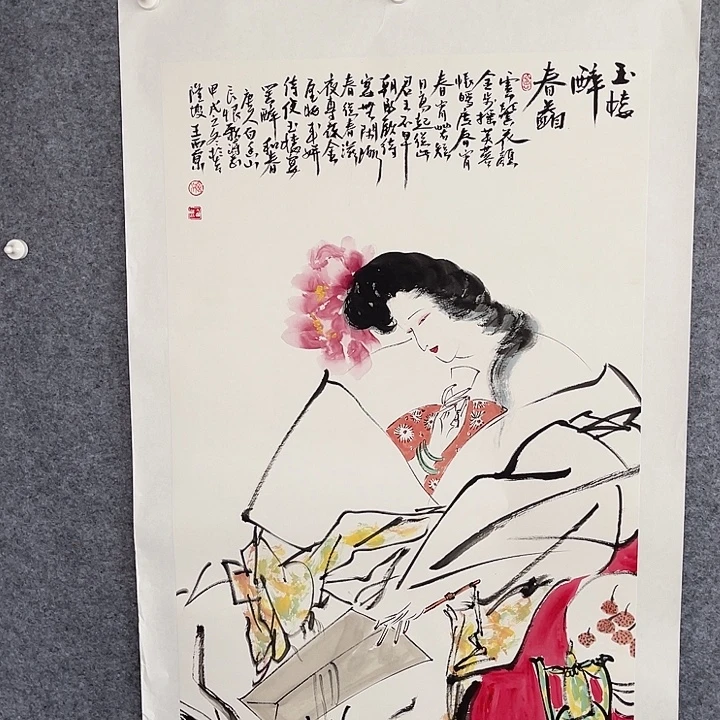 玉樓
醉
春圖
雲鬢花顏
金步搖芙蓉
帳暖度春宵
春宵苦短
日高起從此
君王不早
朝承歡侍
宴無閒暇
春從春遊
夜專夜金
屋妝成嬌
侍夜玉樓宴
罷醉和春
唐人白香山
長恨歌詩意
甲戌之冬於古
王西京